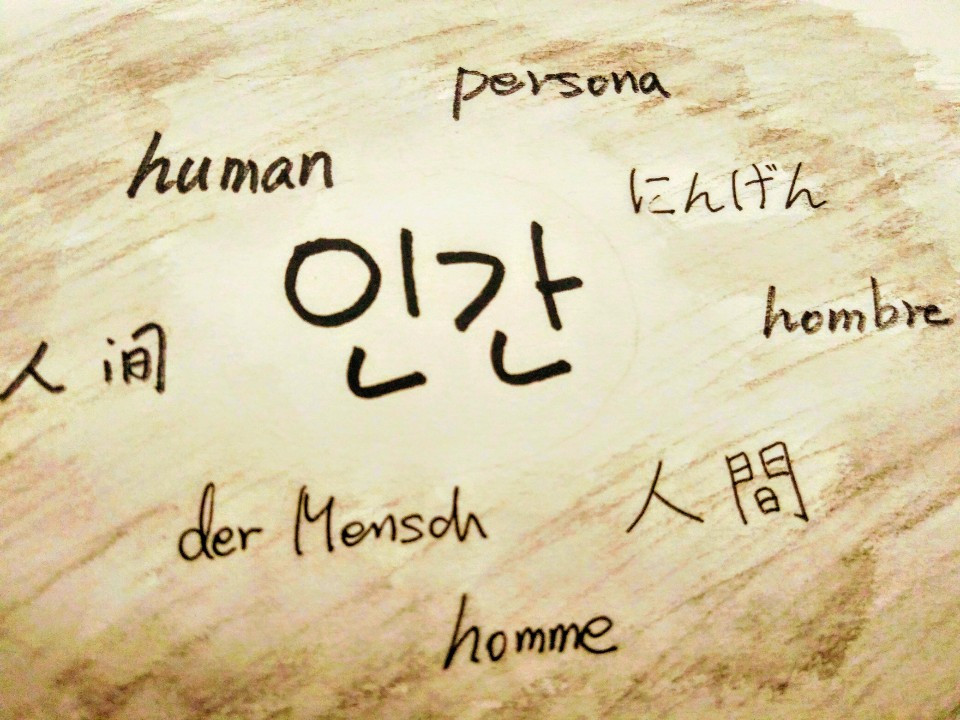 persona
human
にんげん
인간
hombre
人间
der Mensch
人間
homme